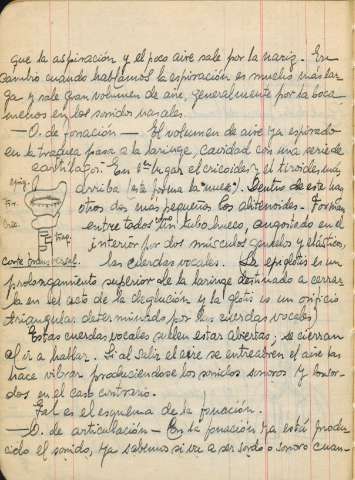 que la aspiración y el poco aire sale por la nariz. En
cambio cuando hablamos la espiración es mucho más lar-
ga y sale gran volumen de aire, generalmente por la boca
menos en los sonidos nasales.
— O. de fonación — El volumen de aire ya espirado
en la traquea pasa a la laringe, cavidad con una serie de
cartílagos. En 1er lugar el cricoides, el tiroides más
arriba (este forma la "nuez"). Dentro de este hay
otros dos más pequeños los aritenoides. Forman
entre todos un tubo hueco, angostado en el
interior por dos músculos gemelos y elásticos,
las cuerdas vocales. La epiglotis es un
prolongamiento superior de la laringe destinado a cerrar-
la en el acto de la deglución y la glotis es un orificio
triangular determinado por las cuerdas vocales)
Estas cuerdas vocales suelen estar abiertas; se cierran
al ir a hablar. Si al salir el aire se entreabren el aire las
hace vibrar produciendose los sonidos sonoros y los sor-
dos en el caso contrario.
Tal es el esquema de la fonación.
— O. de articulación — En la fonación ya está produ-
cido el sonido, ya sabemos si va a ser sordo o sonoro cuan-
Epig.
Tir.
Cric.
Traq.
Corte transversal.